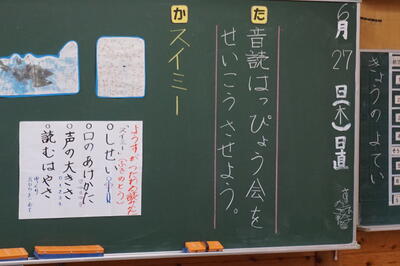 6月27日(木)日直
た
音読はっぴょう会を
せいこうさせよう。
か
スイミー
ようすがつたわる読み方
「スイミー」
(ふきのとう)
○しせい
○口のあけかた
○声の大きさ
○読むはやさ
きょうのよてい